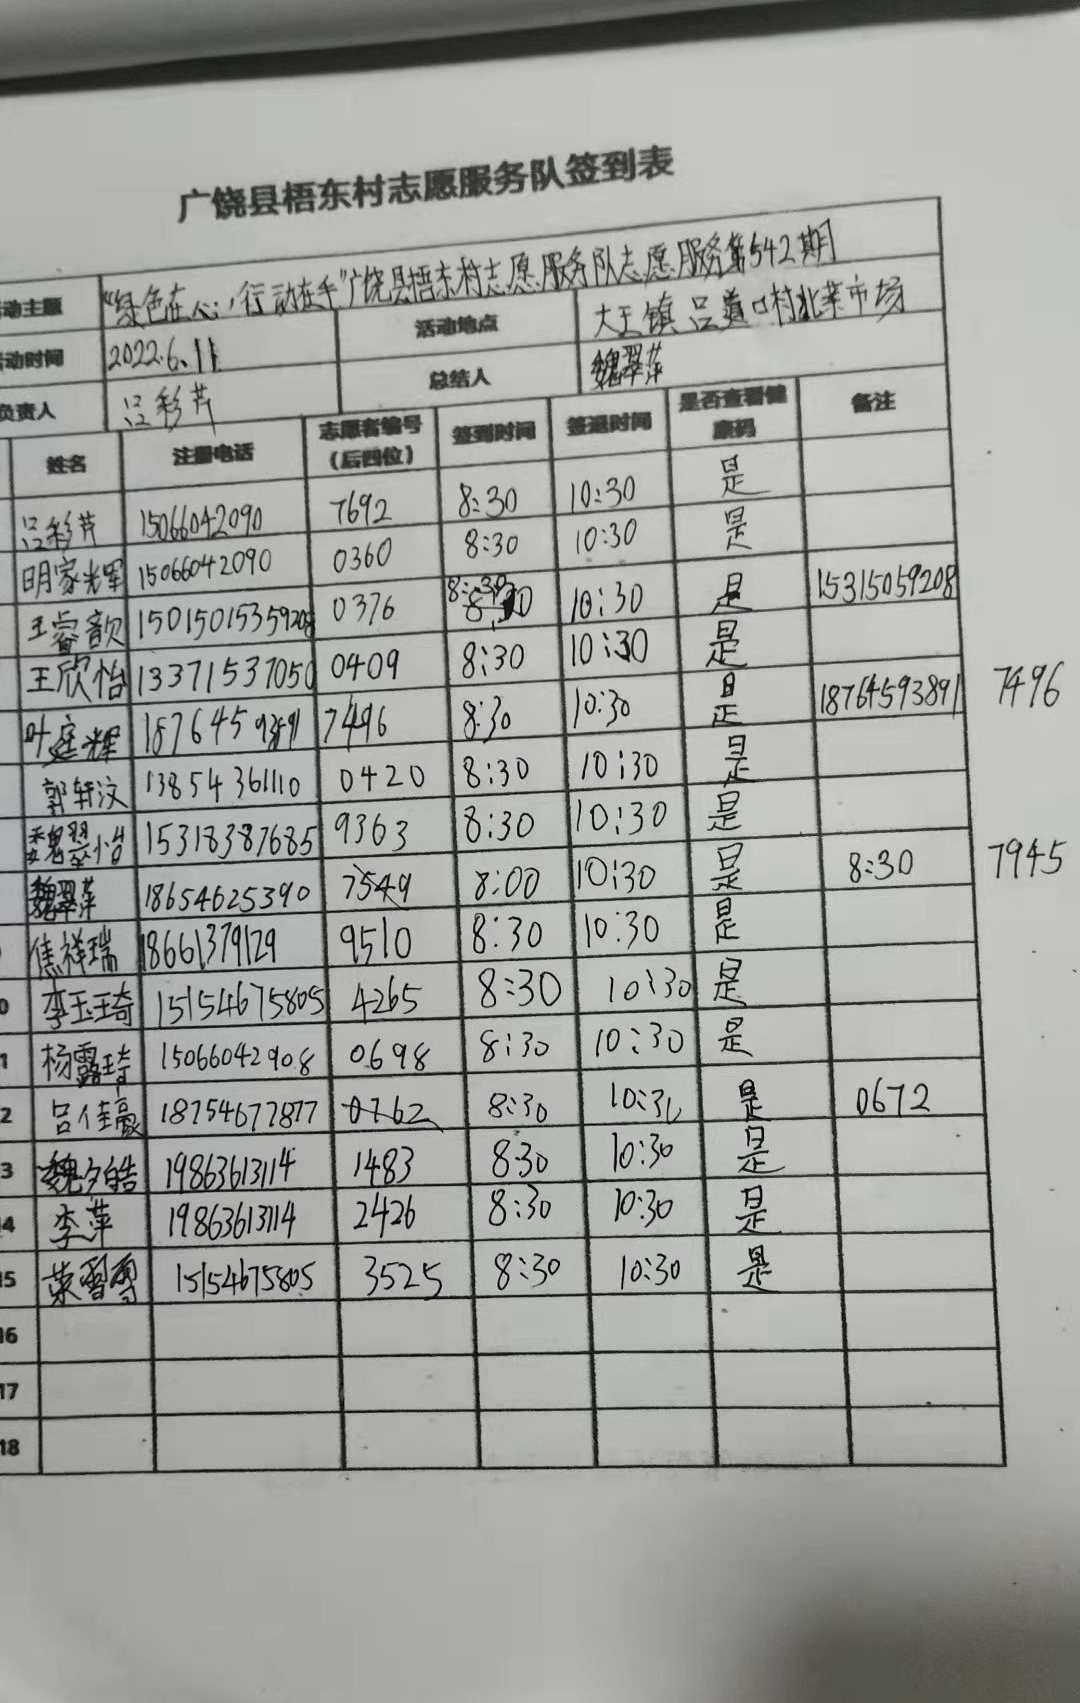 广饶县梧东村志愿服务队签到表
动主题 “绿色在心，行动在手”广饶县梧东村志愿服务队志愿服务第542期
动时间 2022.6.11 活动地点 大王镇吕道口村北菜市场
负责人 吕彩芹 总结人 魏翠萍
姓名 注册电话 志愿者编号（后四位） 签到时间 签退时间 是否查看健康码 备注
吕彩芹 15066042090 7692 8:30 10:30 是
明家辉 15066042090 0360 8:30 10:30 是
王睿歆 15015015359208 0376 8:30 8:30 10:30 是 15315059208
王欣怡 13371537050 0409 8:30 10:30 是
叶庭辉 187645 7496 8:30 10:30 是 18764593891 7496
郭轩汶 13854361110 0420 8:30 10:30 是
魏翠怡 15318387685 9363 8:30 10:30 是
魏翠萍 18654625390 7549 8:00 10:30 是 8:30 7945
焦祥瑞 18661379129 9510 8:30 10:30 是
0 李玉琦 15154675805 4265 8:30 10:30 是
1 杨露琦 15066042908 0698 8:30 10:30 是
2 吕佳豪 18754677877 0762 8:30 10:30 是 0672
3 魏夕皓 19863613114 1483 830 10:30 是
4 李萍 19863613114 2426 8:30 10:30 是
5 15154675805 3525 8:30 10:30 是
16
17
18